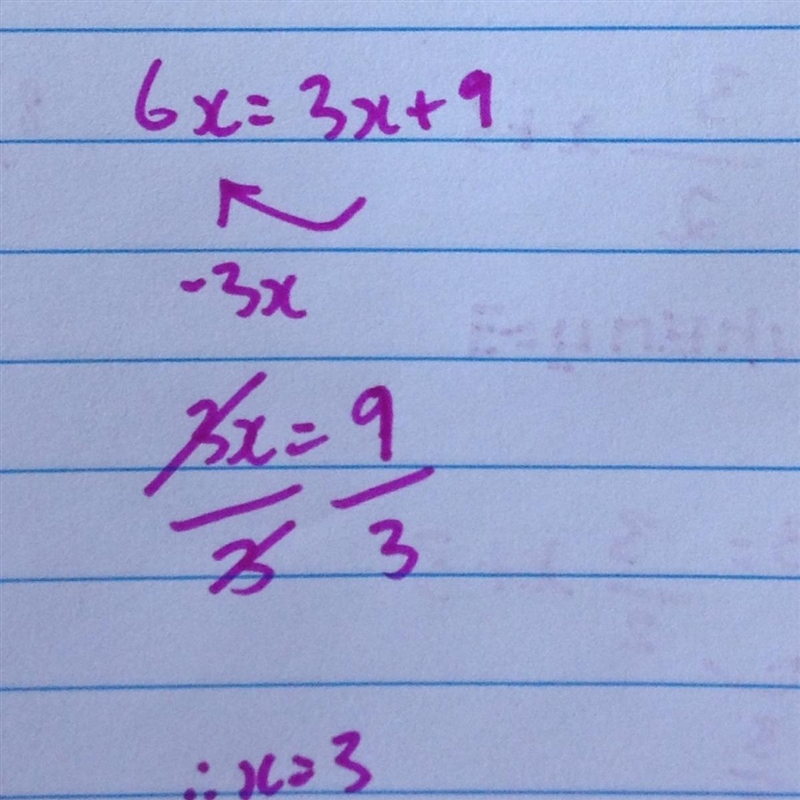 6x=3x+9
-3x
3x=9
3 3
∴x=3